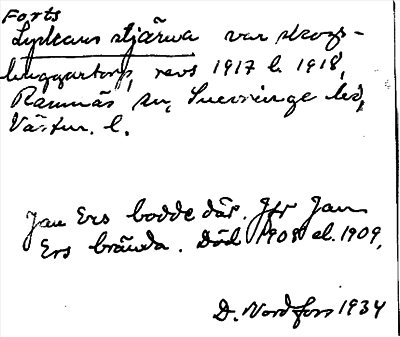 Forts
Lyckans stjärna var skogs-
huggartorp, revs 1917 l. 1918,
Ramnäs sn, Snevringe hd,
Västm. l.
Jan Ers bodde där. Jfr Jan
Ers brända. Död 1908 el. 1909.
D. Nordfors 1934